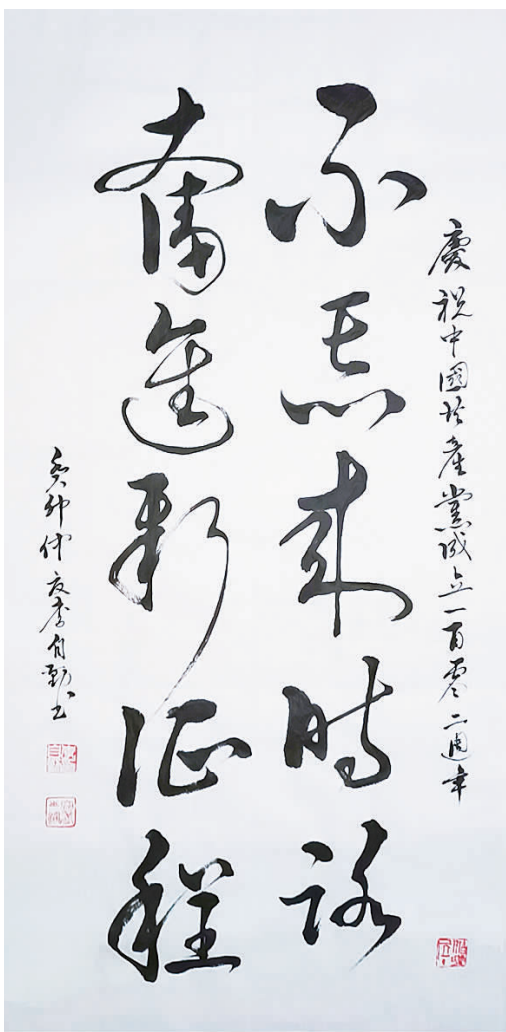 慶祝中國共產黨成立一百零二周年
不忘来時路
奮進新征程
癸卯仲夏李自勤书